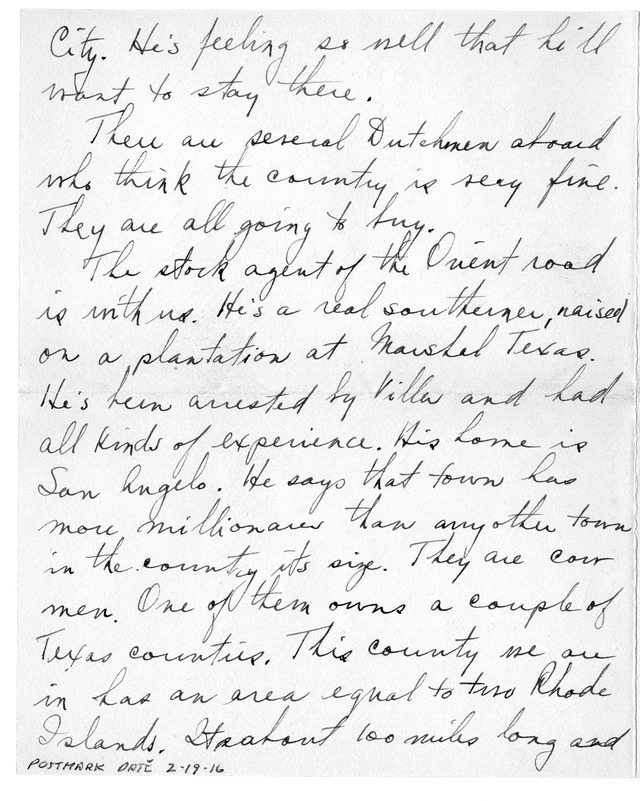 City. He's feeling so well that he'll
want to stay there.
There are several Dutchmen aboard
who think the country is very fine.
They are all going to buy.
The stock agent of the Orient road
is with us. He's a real southerner, raised
on a plantation at Marshel Texas.
He's been arrested by Villa and had
all kinds of experience. His home is
San Angelo. He says that town has
more millionaires than any other town
in the country its size. They are cow
men. One of them owns a couple of
Texas counties. This county we are
in has an area equal to two Rhode
Islands. Its about 100 miles long and
POSTMARK DATE 2-19-16